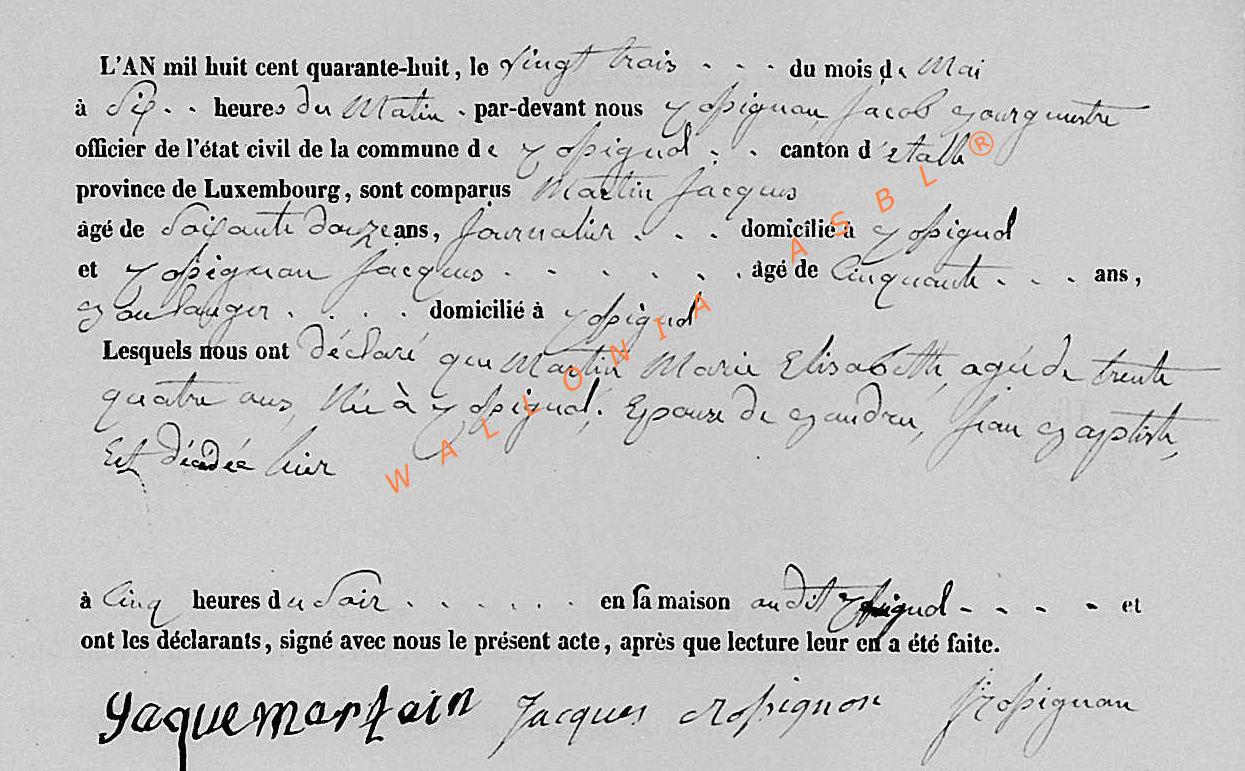 L'AN mil huit cent quarante-huit, le vingt trois . . . du mois de Mai
à Six . . heures du Matin . par-devant nous Rossignon Jacob Bourgmestre
officier de l'état civil de la commune de Rossignol . . canton d'etalle
province de Luxembourg, sont comparus Martin Jacques
âgé de Soixante douze ans, Journalier . . . domicilié à Rossignol
et Rossignon Jacques . . . . . . . âgé de Cinquante . . . ans,
Boulanger . . . . domicilié à Rossignol
Lesquels nous ont déclaré que Martin Marie Elisabeth, agée de trente
quatre ans, Née à Rossignol, Epouse de Baudru, Jean Baptiste,
Est décédée hier
à Cinq heures du Soir . . . . . . en sa maison audit Rossignol - - - - et
ont les déclarants, signé avec nous le présent acte, après que lecture leur en a été faite.
yaquemartain Jacques Rossignon JRossignon
WALLONIA ASBL ®